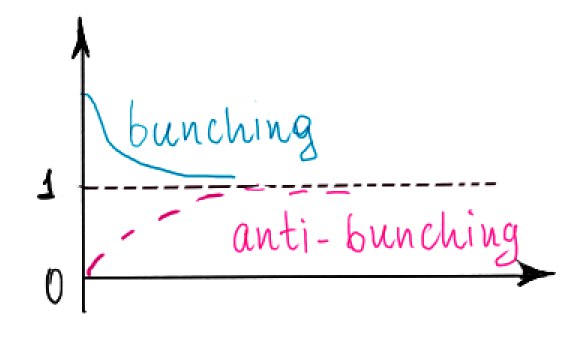 bunching
1
anti-bunching
0